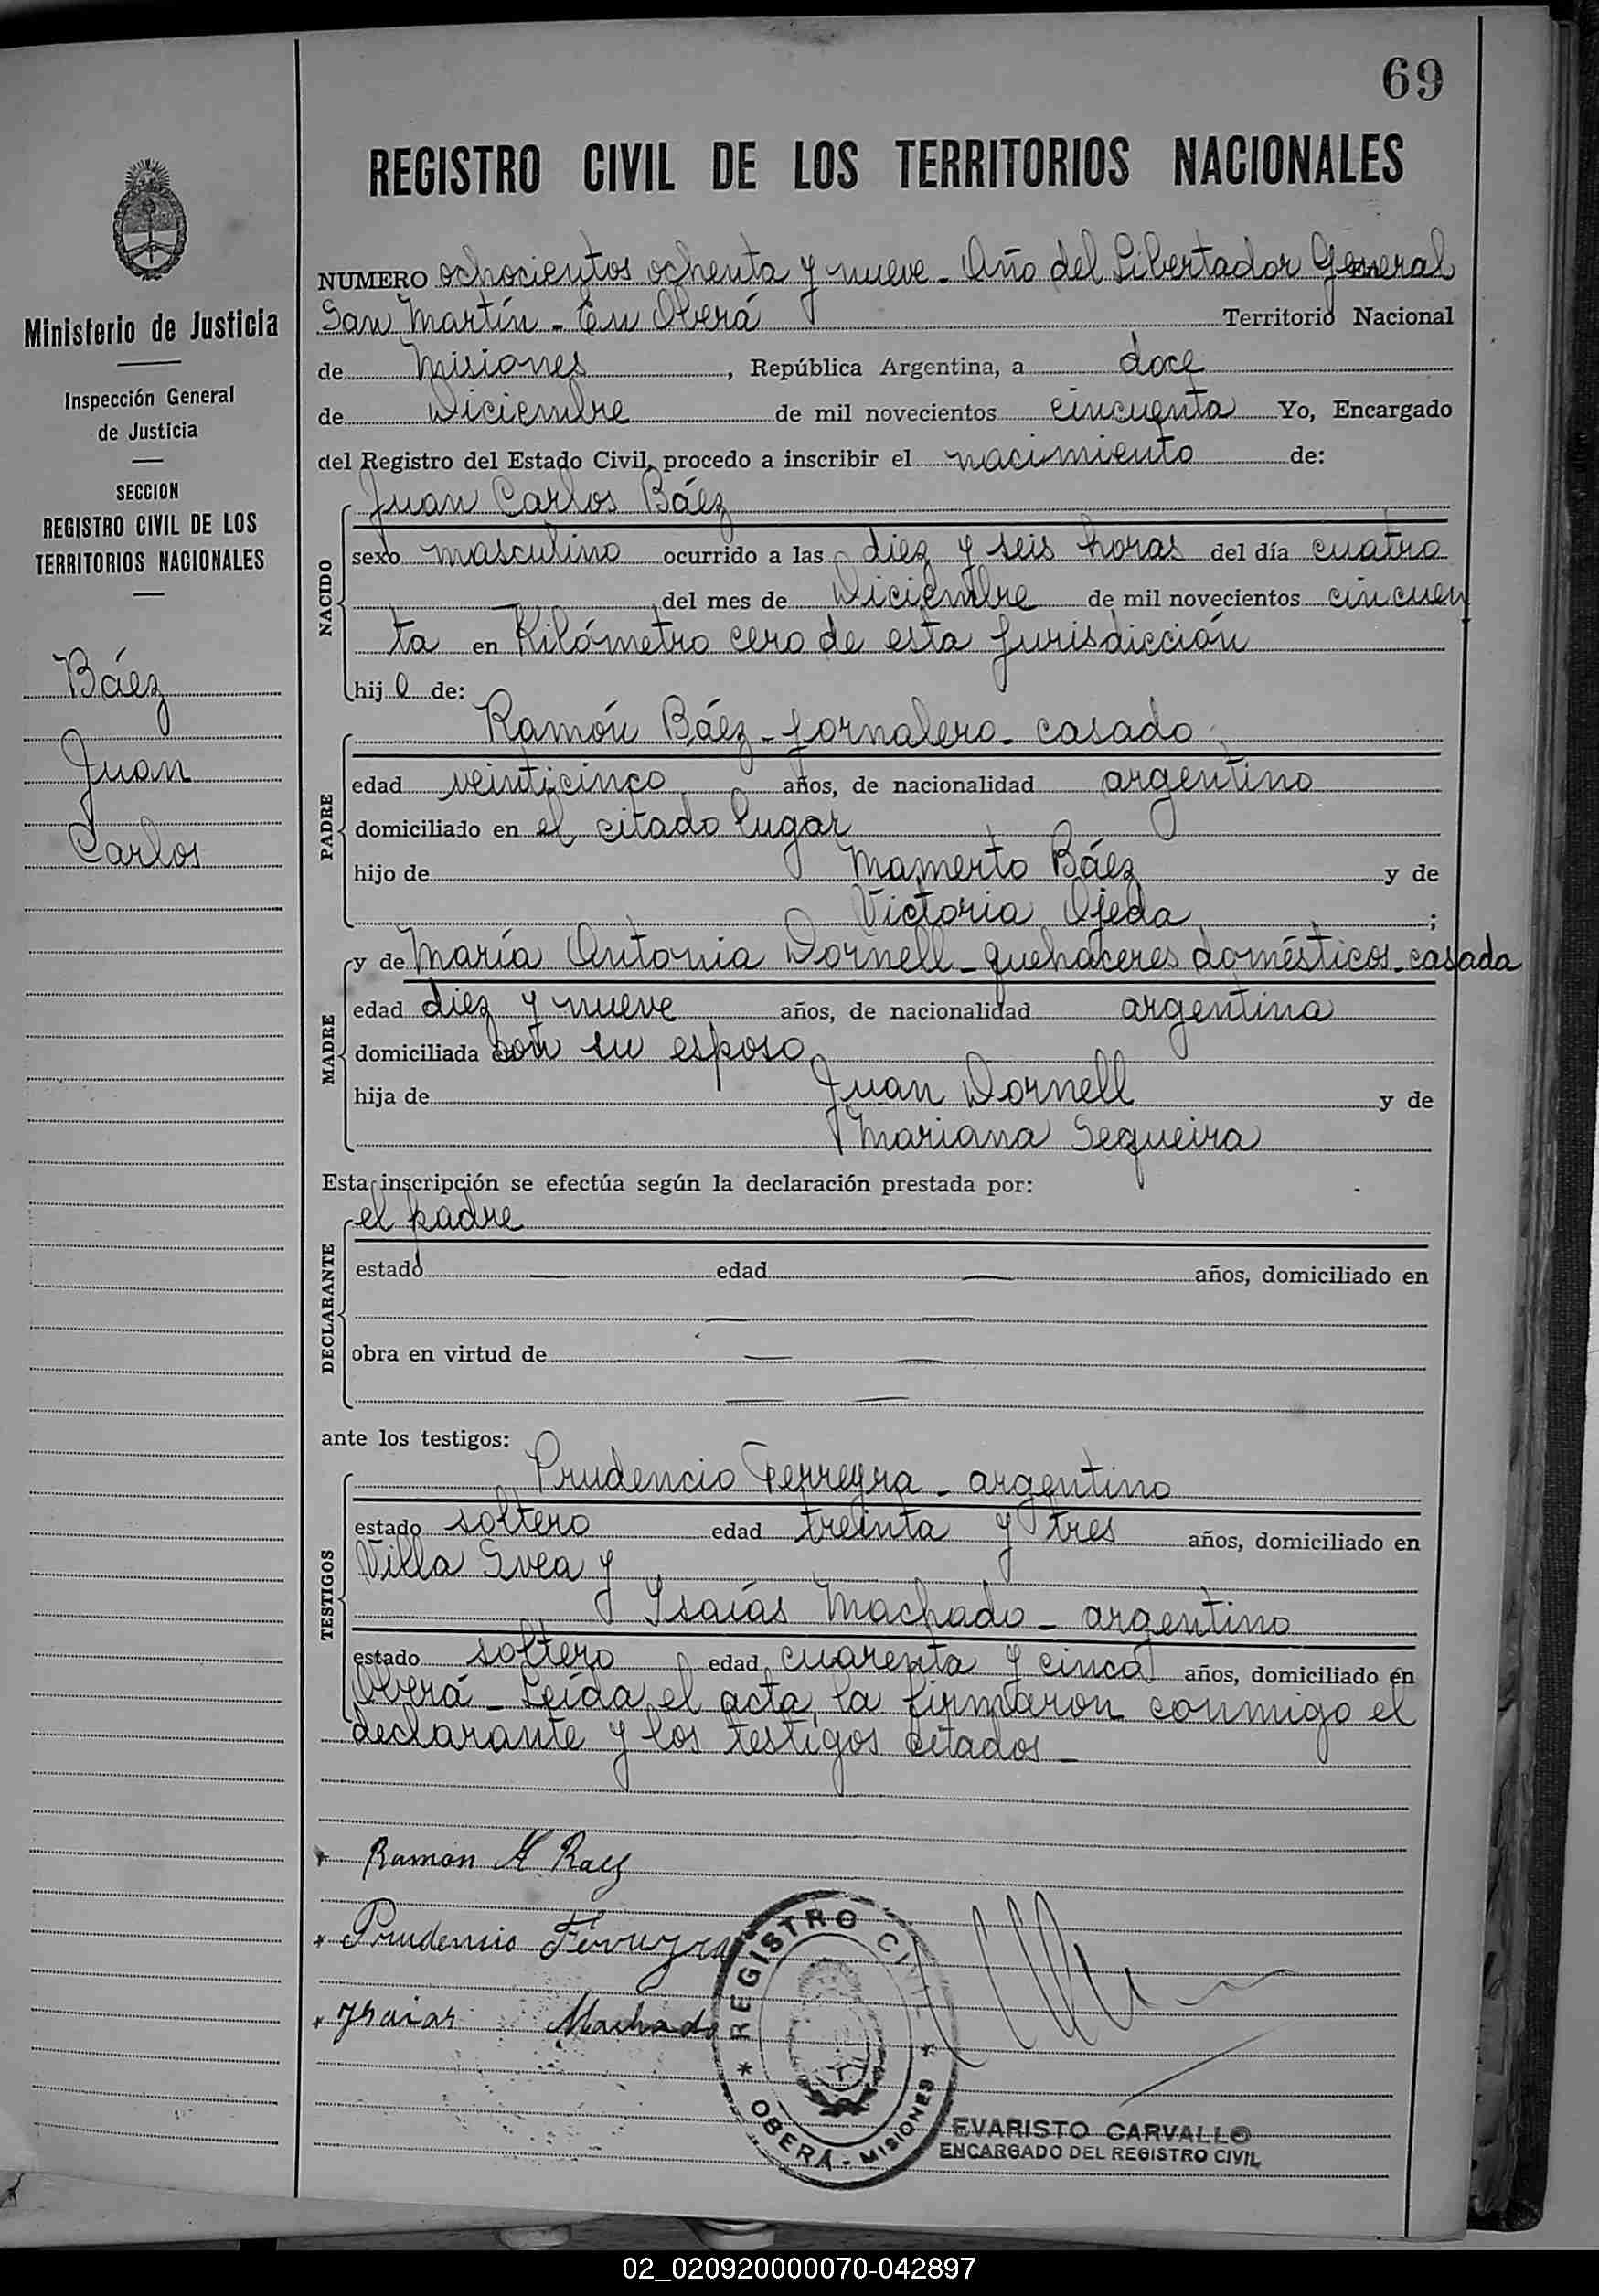 69
REGISTRO CIVIL DE LOS TERRITORIOS NACIONALES
Ministerio de Justicia
Inspección General
de Justicia
SECCION
REGISTRO CIVIL DE LOS
TERRITORIOS NACIONALES
Báez
Juan
Carlos
NUMERO ochocientos ochenta y nueve - Año del Libertador General
San Martín - En Oberá Territorio Nacional
de Misiones, República Argentina, a doce
de Diciembre de mil novecientos cincuenta Yo, Encargado
del Registro del Estado Civil, procedo a inscribir el nacimiento de:
NACIDO
Juan Carlos Báez
sexo masculino ocurrido a las diez y seis horas del día cuatro
del mes de Diciembre de mil novecientos cincuen
ta en Kilómetro cero de esta jurisdicción
hijo de:
PADRE
Ramón Báez - jornalero - casado
edad veinticinco años, de nacionalidad argentino
domiciliado en el citado lugar
hijo de Mamerto Báez y de
Victoria Ojeda ;
MADRE
y de María Antonia Dornell - quehaceres domésticos - casada
edad diez y nueve años, de nacionalidad argentina
domiciliada con su esposo
hija de Juan Dornell y de
Mariana Sequeira
Esta inscripción se efectúa según la declaración prestada por:
DECLARANTE
el padre
estado — edad — años, domiciliado en
— —
obra en virtud de — —
— —
ante los testigos:
TESTIGOS
Prudencio Ferreyra - argentino
estado soltero edad treinta y tres años, domiciliado en
Villa Svea y
Isaías Machado - argentino
estado soltero edad cuarenta y cinco años, domiciliado en
Oberá - Leída el acta, la firmaron conmigo el
declarante y los testigos citados -
Ramon A Baez
Prudencio Ferreyra
Isaias Machado
REGISTRO CIVIL
OBERÁ - MISIONES
EVARISTO CARVALLO
ENCARGADO DEL REGISTRO CIVIL
02_020920000070-042897